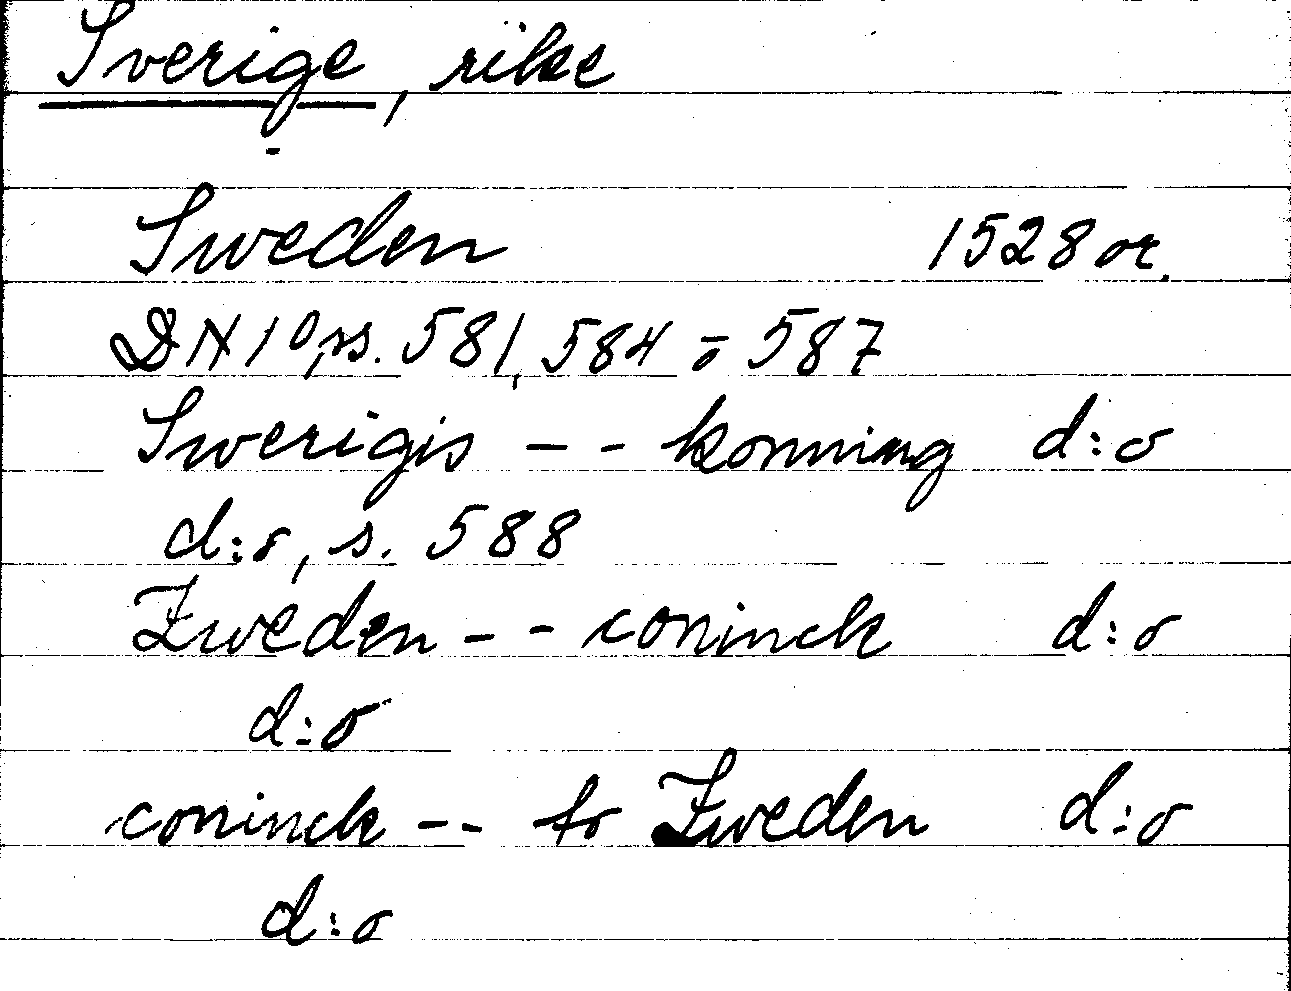 Sverige, rike
Sweden 1528 or.
DN 10, ss. 581, 584 o 587
Swerigis - - konning d:o
d:o, s. 588
Zweden - - coninck d:o
d:o
coninck - - to Zweden d:o
d:o